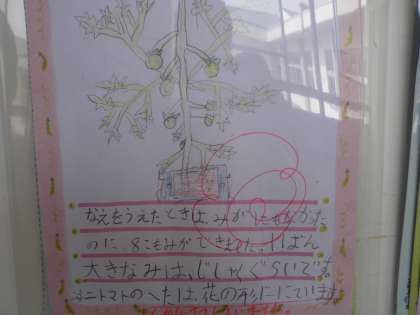 なえをうえたときは、みがなかった
のに、8こもみができました。1ばん
大きなみは、じしゃくぐらいです。
ミニトマトのへたは、花の形ににています。